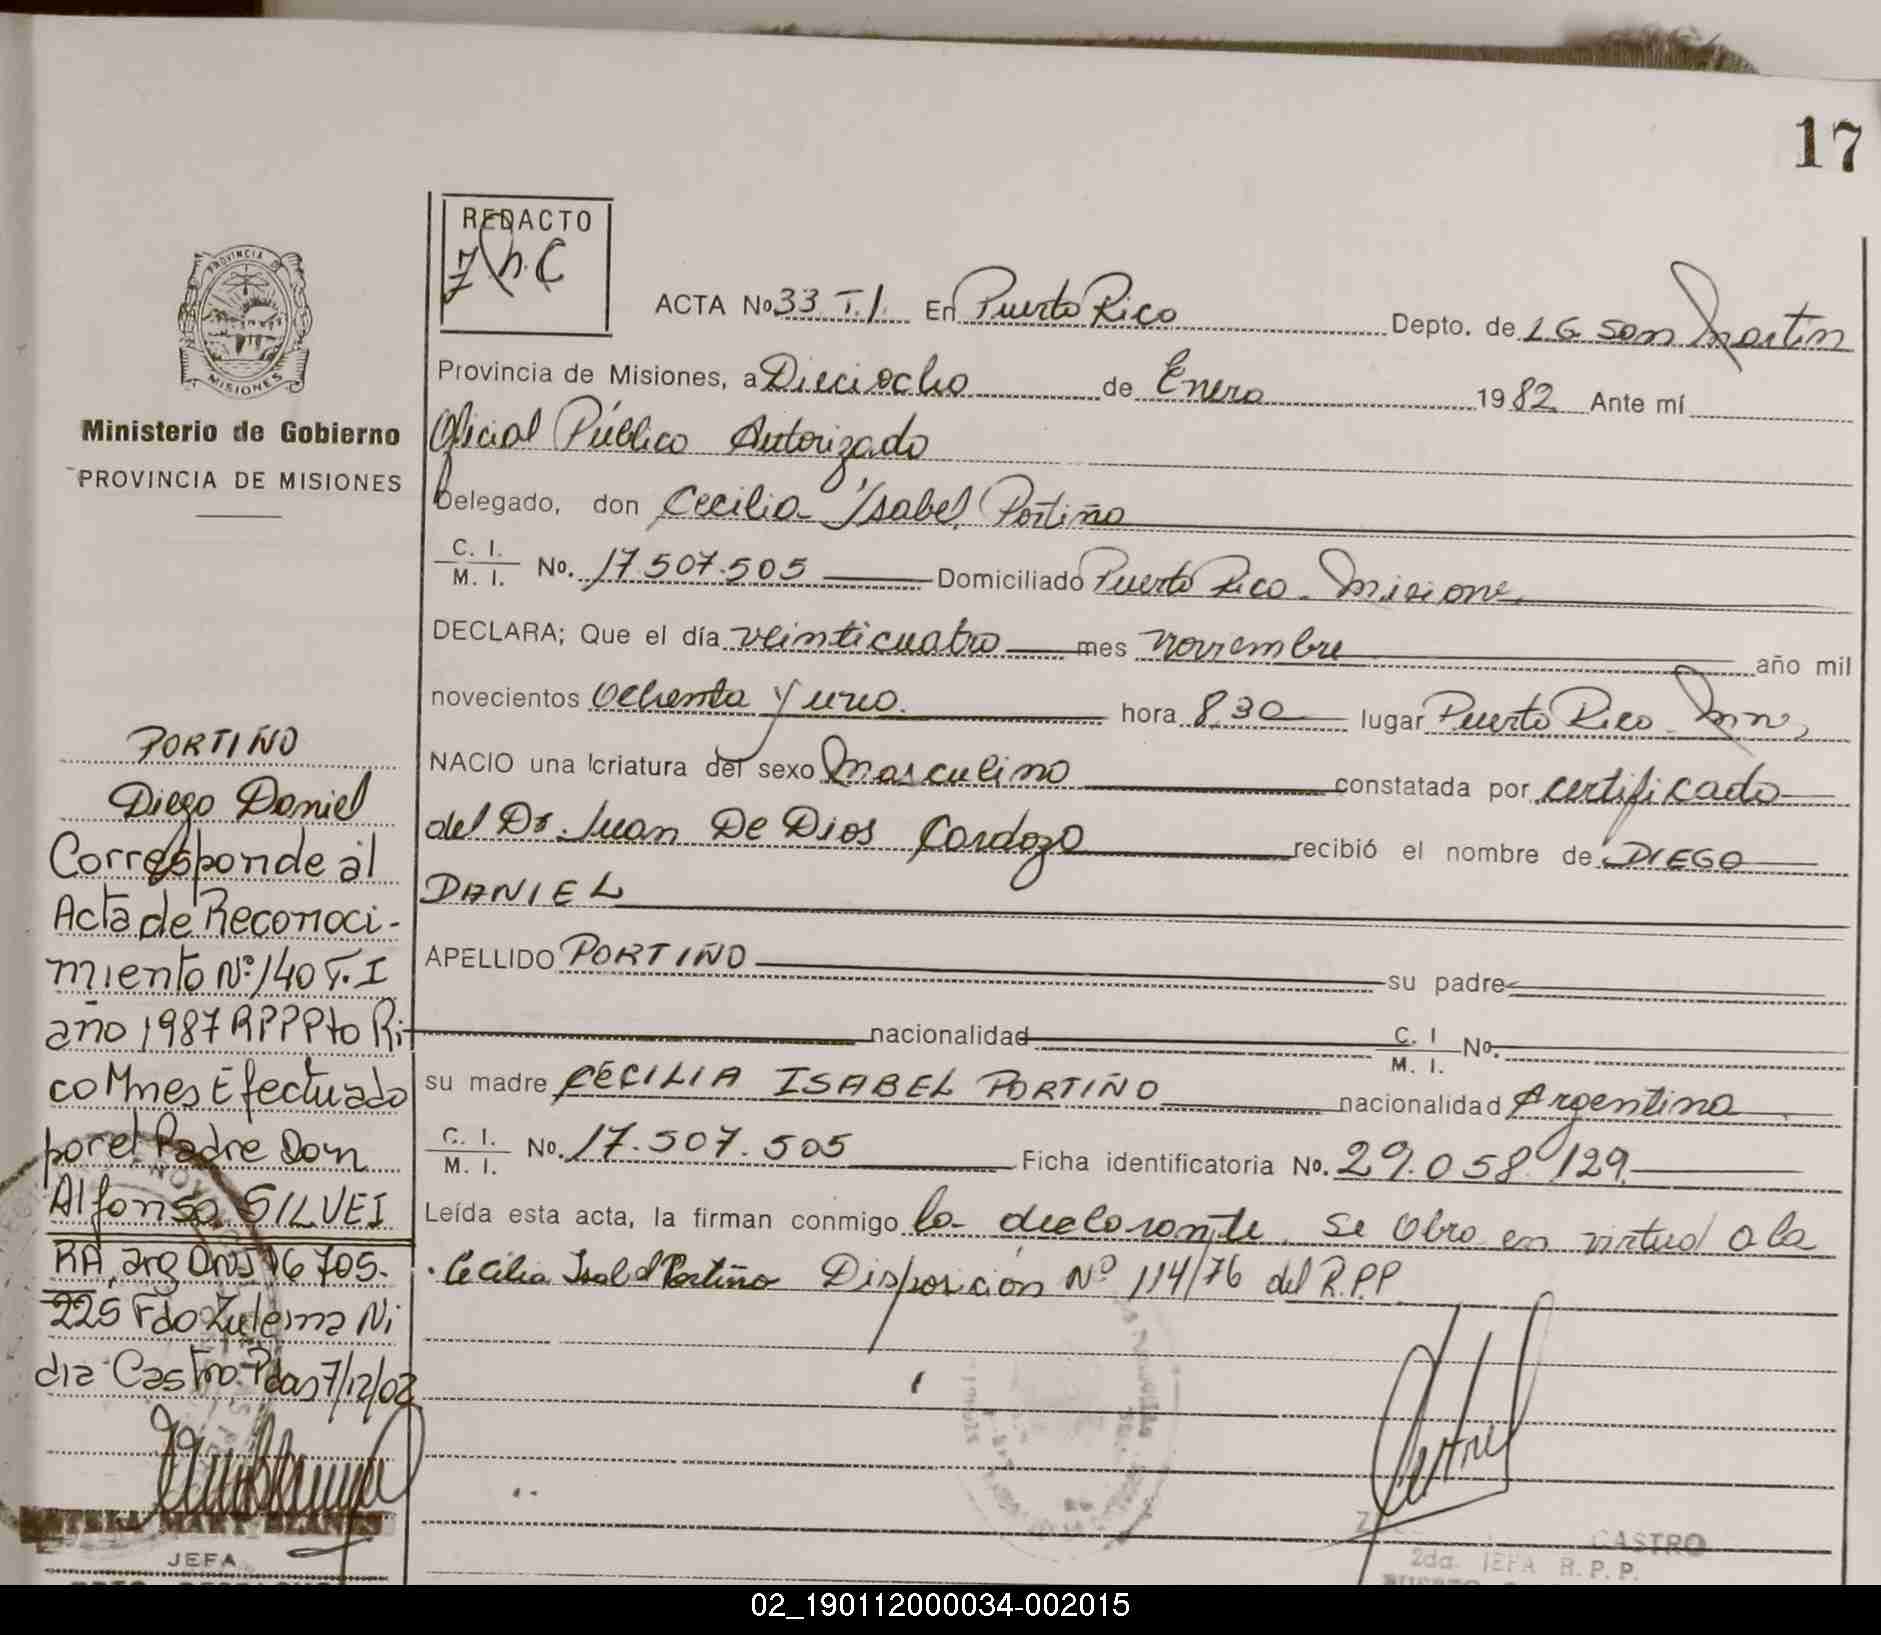 17
REDACTO
Z.N.C
PROVINCIA DE
MISIONES
Ministerio de Gobierno
PROVINCIA DE MISIONES
ACTA No. 33 T.I. En Puerto Rico Depto. de L G San Martin
Provincia de Misiones, a Dieciocho de Enero 1982 Ante mí
Oficial Público Autorizado
Delegado, don Cecilia Isabel Portiño
C. I. / M. I. No. 17.507.505 Domiciliado Puerto Rico - Misiones
DECLARA; Que el día veinticuatro mes noviembre año mil
novecientos Ochenta y uno. hora 8,30 lugar Puerto Rico - Mnes
NACIO una criatura del sexo Masculino constatada por certificado
del Dr. Juan De Dios Cardozo recibió el nombre de DIEGO
DANIEL
APELLIDO PORTIÑO su padre
nacionalidad C. I / M. I. No.
su madre CECILIA ISABEL PORTIÑO nacionalidad Argentina
C. I. / M. I. No. 17.507.505 Ficha identificatoria No. 29.058.129
Leída esta acta, la firman conmigo la declarante. Se obro en virtud a la
Cecilia Isabel Portiño Disposición Nº 114/76 del R.P.P
PORTIÑO
Diego Daniel
Corresponde al
Acta de Reconoci-
miento Nº 140 T.I
año 1987 RPP Pto Ri
co Mnes Efectuado
por el Padre Don
Alfonso SILVEI
RA, arg DNI 16705.
225 Fdo Zulema Ni
dia Castro. Pdas 7/12/02
MARY BLANCO
JEFA
CASTRO
2da. JEFA R.P.P.
02_190112000034-002015